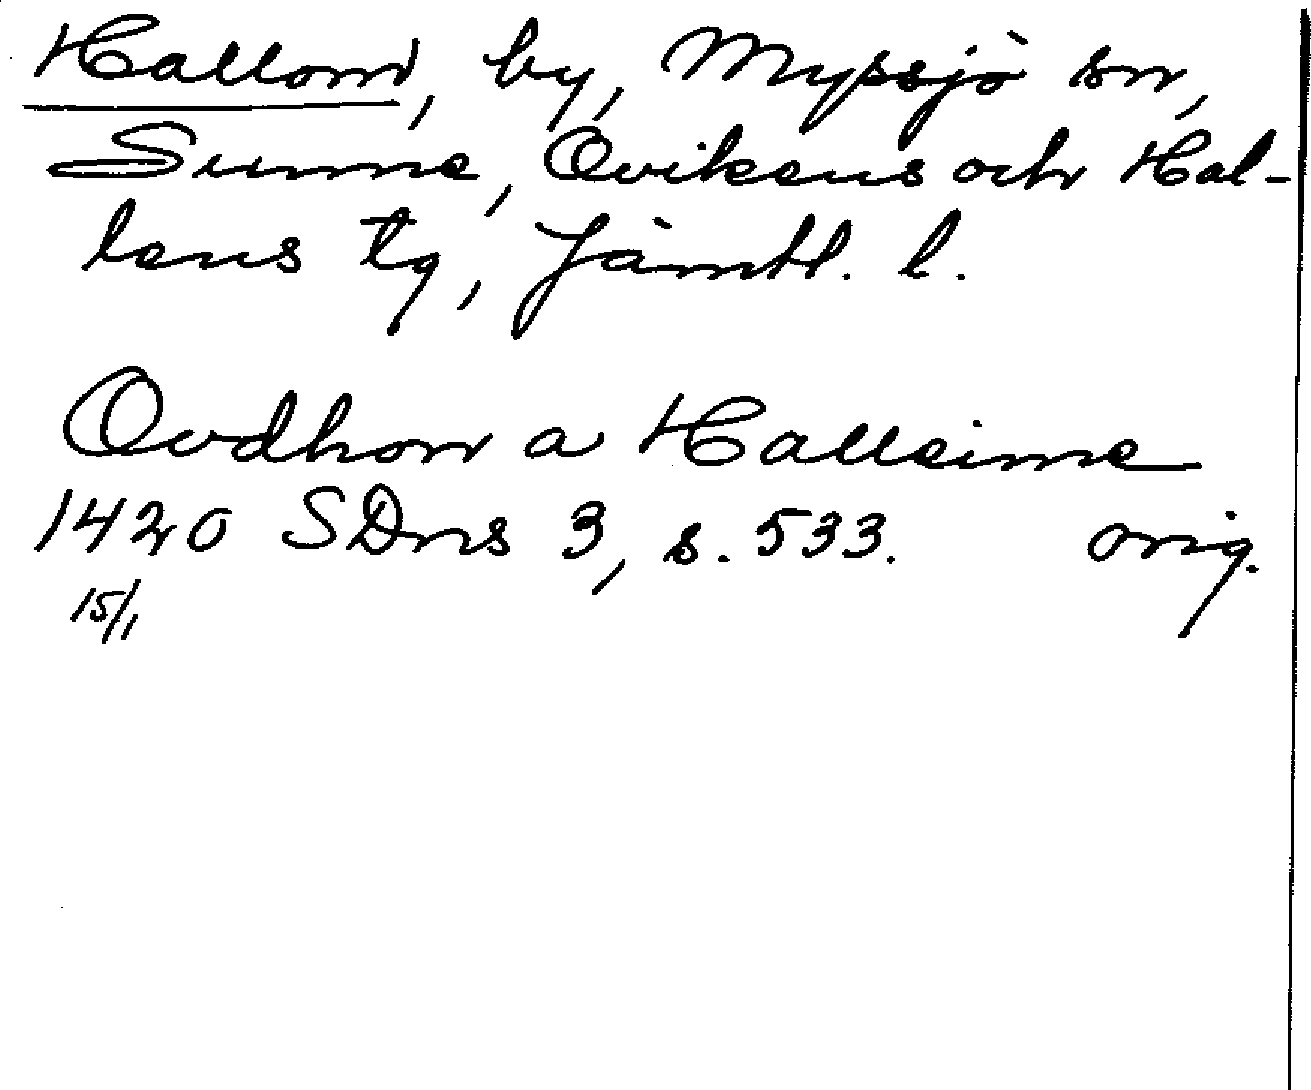 Hallom, by, Myssjö sn,
Sunne, Ovikens och Hal-
lens tg, Jämtl. l.
Ovdhon a Halleime
1420 SDns 3, s. 533. orig.
15/1